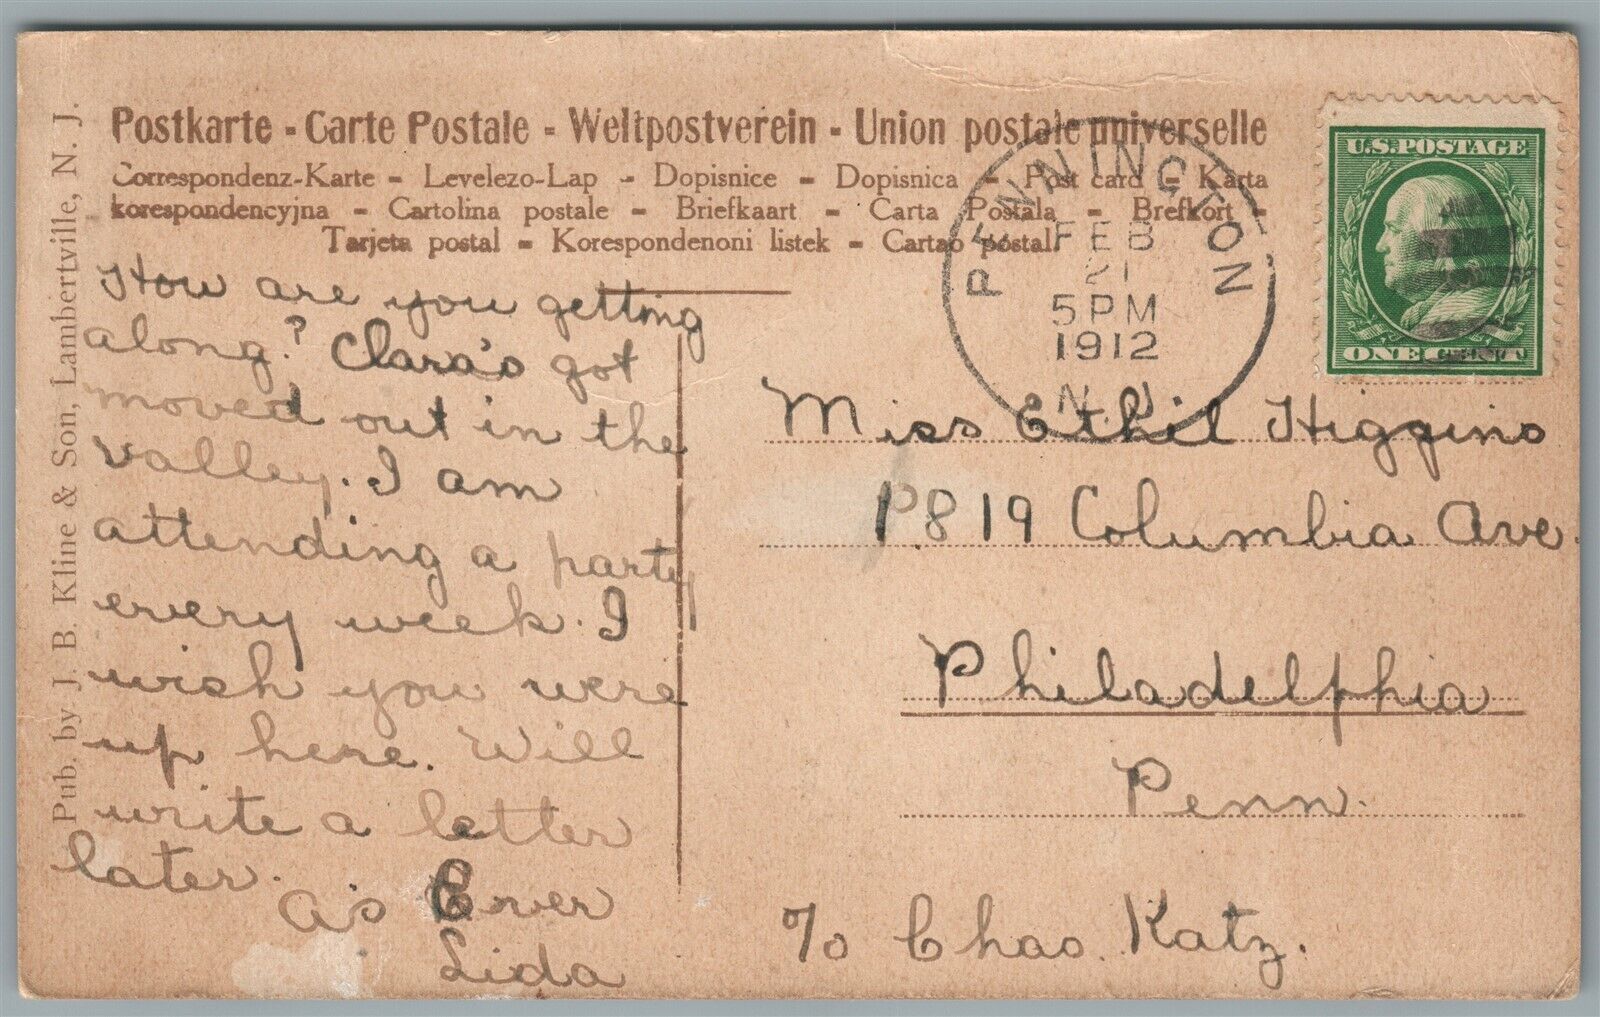 Postkarte - Carte Postale - Weltpostverein - Union postale universelle
Correspondenz-Karte - Levelezo-Lap - Dopisnice - Dopisnica - Post card - Karta
korespondencyjna - Cartolina postale - Briefkaart - Carta Postala - Brefkort -
Tarjeta postal - Korespondenoni listek - Cartao postal.
Pub. by J. B. Kline & Son, Lambertville, N. J.
How are you getting
along? Clara's got
moved out in the
valley. I am
attending a party
every week. I
wish you were
up here. Will
write a letter
later.
As Ever
Lida
PENNINGTON
FEB
21
5 PM
1912
N.J.
U.S. POSTAGE
ONE CENT
Miss Ethil Higgins
1819 Columbia Ave.
Philadelphia
Penn.
c/o Chas. Katz.